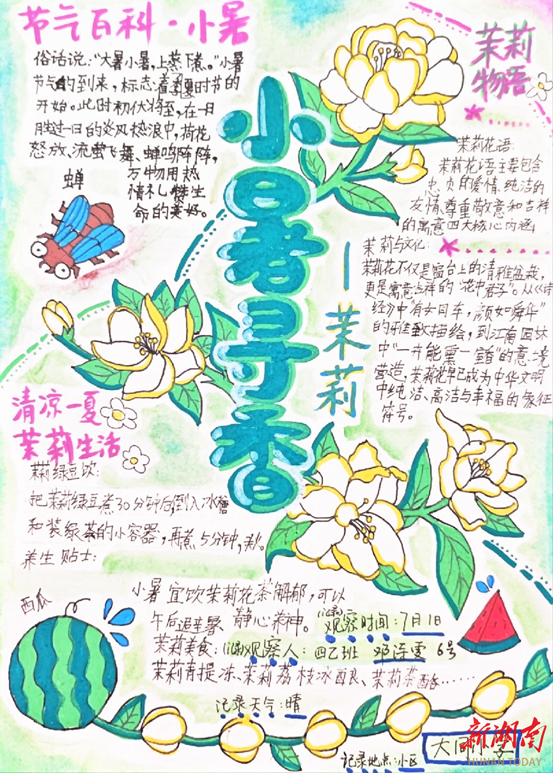 节气百科·小暑
俗话说:"大暑小暑,上蒸下煮。"小暑
节气的到来,标志着夏时节的
开始。此时初伏将至,在一日
胜过一日的炎风热浪中,荷花
怒放、流萤飞舞、蝉鸣阵阵,
万物用热
情礼赞生
命的美好。
蝉
小暑寻香
—茉莉
茉莉
物语
茉莉花语:
茉莉花语主要包含
忠贞的爱情、纯洁的
友情、尊重敬意和吉祥
的寓意四大核心内涵
茉莉与文化:
茉莉花不仅是窗台上的清雅盆栽,
更是寓意吉祥的"花中君子"。从《诗
经》中"有女同车,颜如舜华"
的雅致描绘,到江南园林
中"一卉能熏一室香"的意境
营造,茉莉花早已成为中华文明
中纯洁、高洁与幸福的象征
符号。
清凉一夏
茉莉生活
茉莉绿豆饮:
把茉莉绿豆煮30分钟后倒入冰糖
和装绿茶的小容器,再煮5分钟,
养生贴士:
小暑宜饮茉莉花茶解郁,可以
午后 静心养神。
茉莉美食:
茉莉青提冻、茉莉荔枝冰酿、茉莉茶酥……
西瓜
观察时间:7月1日
观察人:四乙班 邓连雯 6号
记录天气:晴
记录地点:小区
大同小
新湖南
HUNAN TODAY